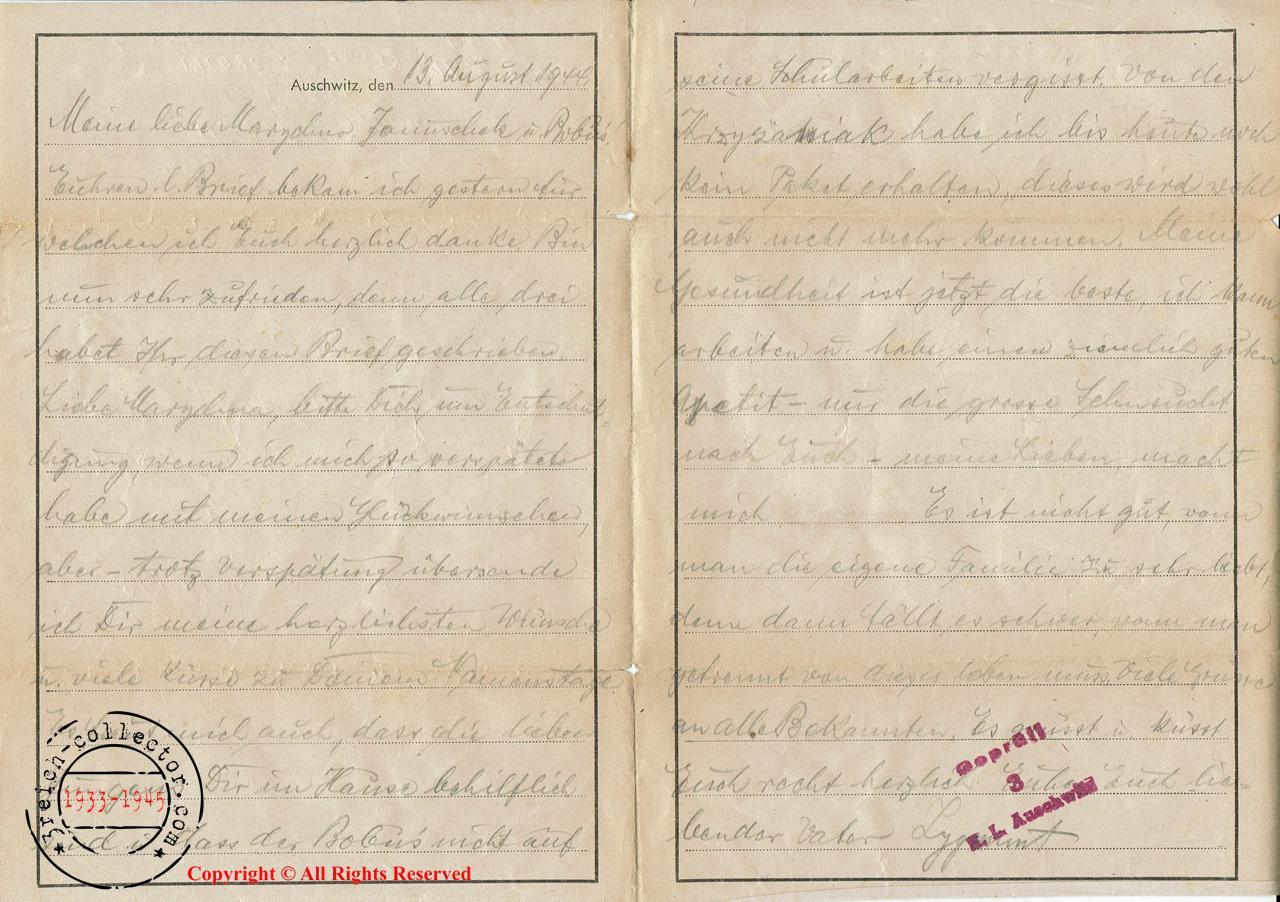 Auschwitz, den 13. August 1944
Meine liebe Marychna, Januschek u. Bobuś!
Euhren l. Brief bekam ich gestern für
welchen ich Euch herzlich danke. Bin
nun sehr zufrieden, denn alle drei
habet Ihr diesen Brief geschrieben.
Liebe Marychna, bitte Dich um Entschul-
digung, wenn ich mich so verspätet
habe mit meinen Glückwünschen,
aber – trotz Verspätung übersende
ich Dir meine herzlichsten Wünsche
u. viele Küsse zu Deinem Namenstage.
mich auch, dass die lieben
Dir im Hause behilflich
sind u. dass der Bobuś nicht auf
seine Schularbeiten vergisst. Von den
Krzyżaniak habe ich bis heute noch
kein Paket erhalten, dieses wird wohl
auch nicht mehr kommen. Meine
Gesundheit ist jetzt die beste, ich kann
arbeiten u. habe einen ziemlich guten
Apetit – nur die grosse Sehnsucht
nach Euch – meine Lieben, macht
mich Es ist nicht gut, wenn
man die eigene Familie zu sehr liebt,
denn dann fällt es schwer, wenn man
getrennt von dieser leben muss. Viele Grüsse
an alle Bekannten. Es grüsst u. küsst
Euch recht herzlich Euher Euch lie-
bender Vater
Geprüft
3
K. L. Auschwitz
3reich-collector.com
1933-1945
Copyright © All Rights Reserved